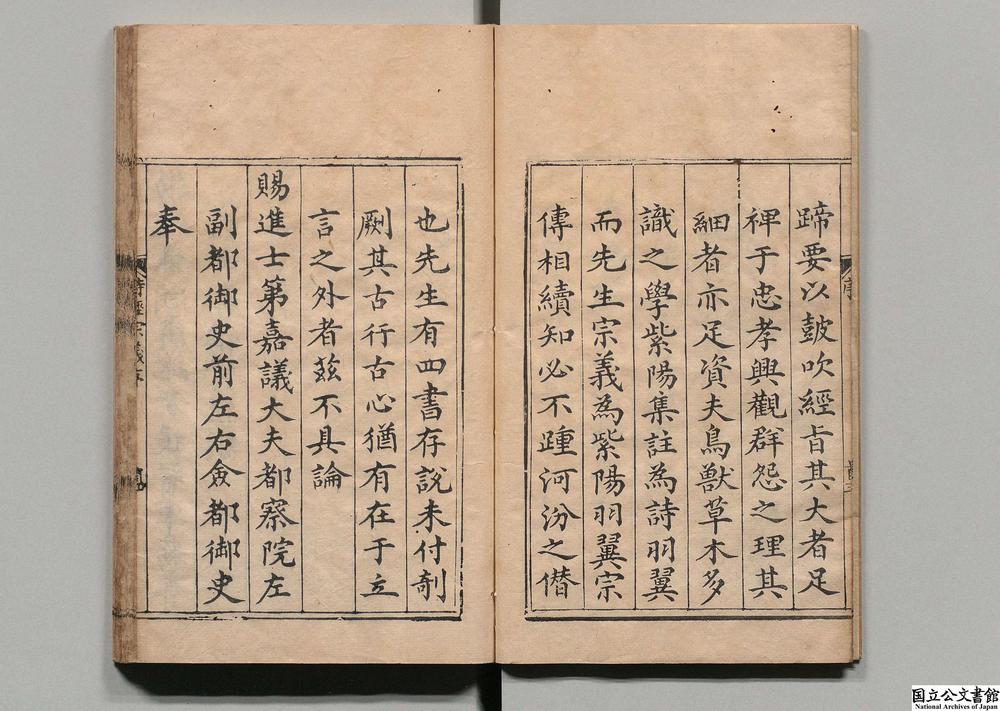 蹄要以鼓吹經旨其大者足
禆于忠孝興觀群怨之理其
細者亦足資夫鳥獸草木多
識之學紫陽集註為詩羽翼
而先生宗義為紫陽羽翼宗
傳相續知必不踵河汾之僣
也先生有四書存說未付剞
劂其古行古心猶有在于立
言之外者茲不具論
賜進士第嘉議大夫都察院左
副都御史前左右僉都御史
奉
詩經宗義序
国立公文書館
National Archives of Japan